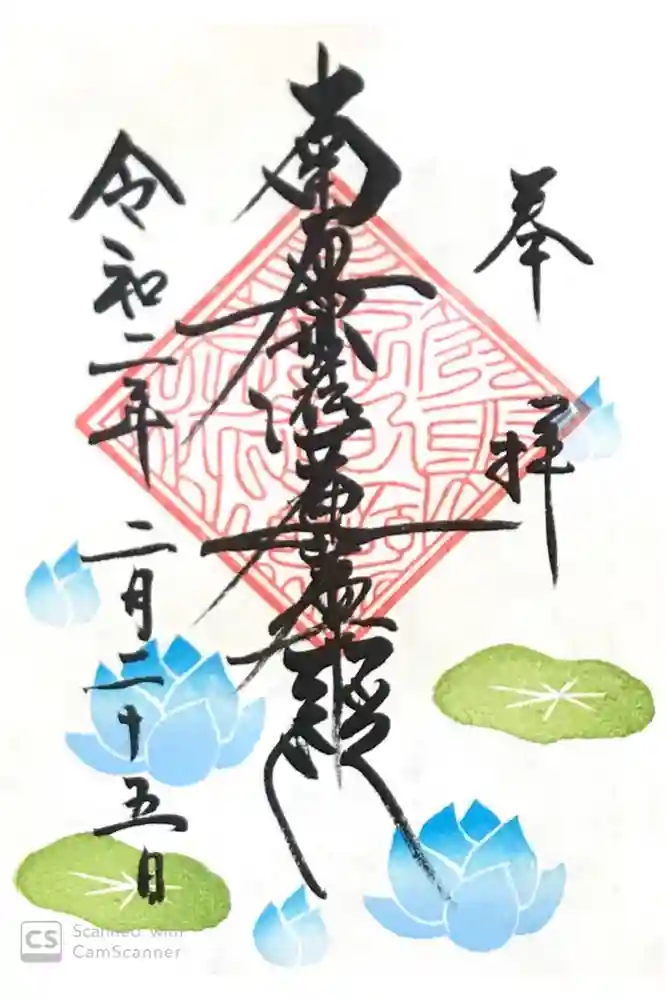 奉拝
南無妙法蓮華經
令和二年 二月二十五日
CS Scanned with
CamScanner